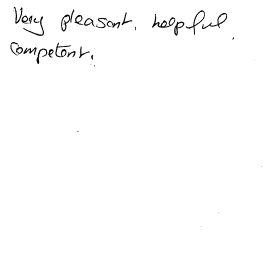 Very pleasant, helpful,
competent.